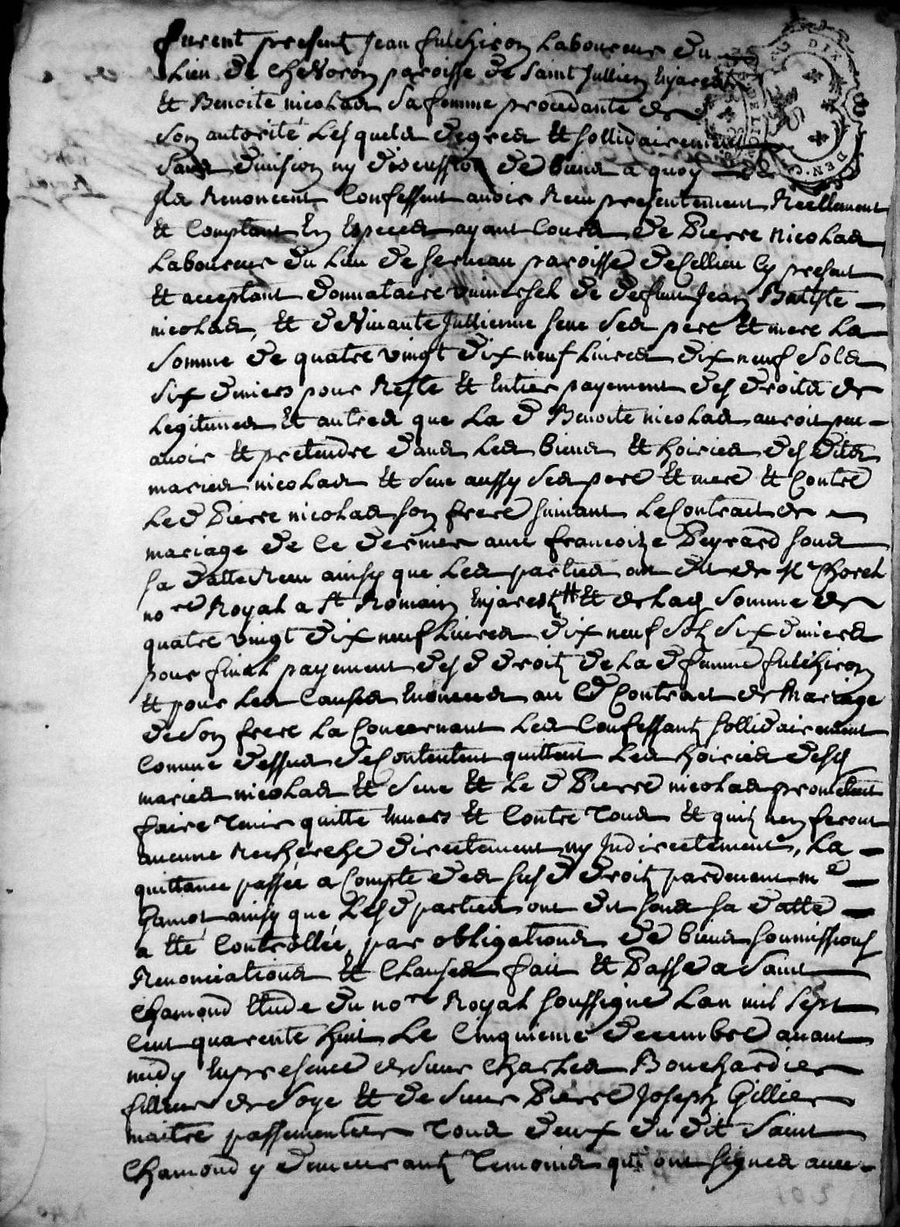 furent present Jean fulchiron Laboureur du
Lieu de Chevoron paroisse de Saint Jullien Enjarest
Et Benoite nicolas sa femme procedante de
son autorité Lesquels degres Et sollidairement
sans division ny discussion de biens a quoy
Ils Renoncent Confessent avoir Reçu presentement Reellement
Et Comptant En Especes ayant Cours de Pierre nicolas
Laboureur du Lieu de paroisse deCellieu Cy present
Et acceptant donnataire universel de deffunt Jean Batiste
nicolas, Et deVivante Jullienne seve ses pere Et mere La
somme de quatre vingt dix neuf Livres dix neuf sols
six deniers pour Reste Et Entier payement des droits de
Legitimes Et autres que La d Benoite nicolas auroit peu
avoir Et pretendre dans Les biens Et hoiries des dits
maries nicolas Et seve aussy ses pere Et mere Et Contre
Le d Pierre nicolas son frere suivant LeContract de
mariage de Ce dernier avec francoize Peyrard sous
sa datte Reçu ainsy que Les parties ont dit de Me
nore Royal a St Romain Enjarest Et de Lad somme de
quatre vingt dix neuf Livres dix neuf sols six deniers
pour final payement desd droits de La d femme fulchiron
Et pour Les Causes Enoncées au d Contract de Mariage
de son frere La Concernant Les Confessants sollidairement
Comme dessus seContentent quittent Les hoiries desd
maries nicolas Et seve Et Le d Pierre nicolas promettent
faire tenir quitte Envers Et Contre tous Et quils nen feront
aucune Recherche directement ny Indirectement, La
quittance passée a Compte des susd droits pardevant me
Gamot ainsy que Lesd parties ont dit sous sa datte
a Eté Controllée, par obligations de biens soumissions
Renonciations Et Clauses fait Et Passé a Saint
Chamond Etude du nore Royal soussigné Lan mil sept
Cent quarente huit Le Cinquieme decembre avant
midy En presence de sieur Charles Bouchardier
filleur de soye Et de sieur Pierre Joseph Gillier
maitre passementier tous deux du dit Saint
Chamond y demeurants temoins qui ont signés avec